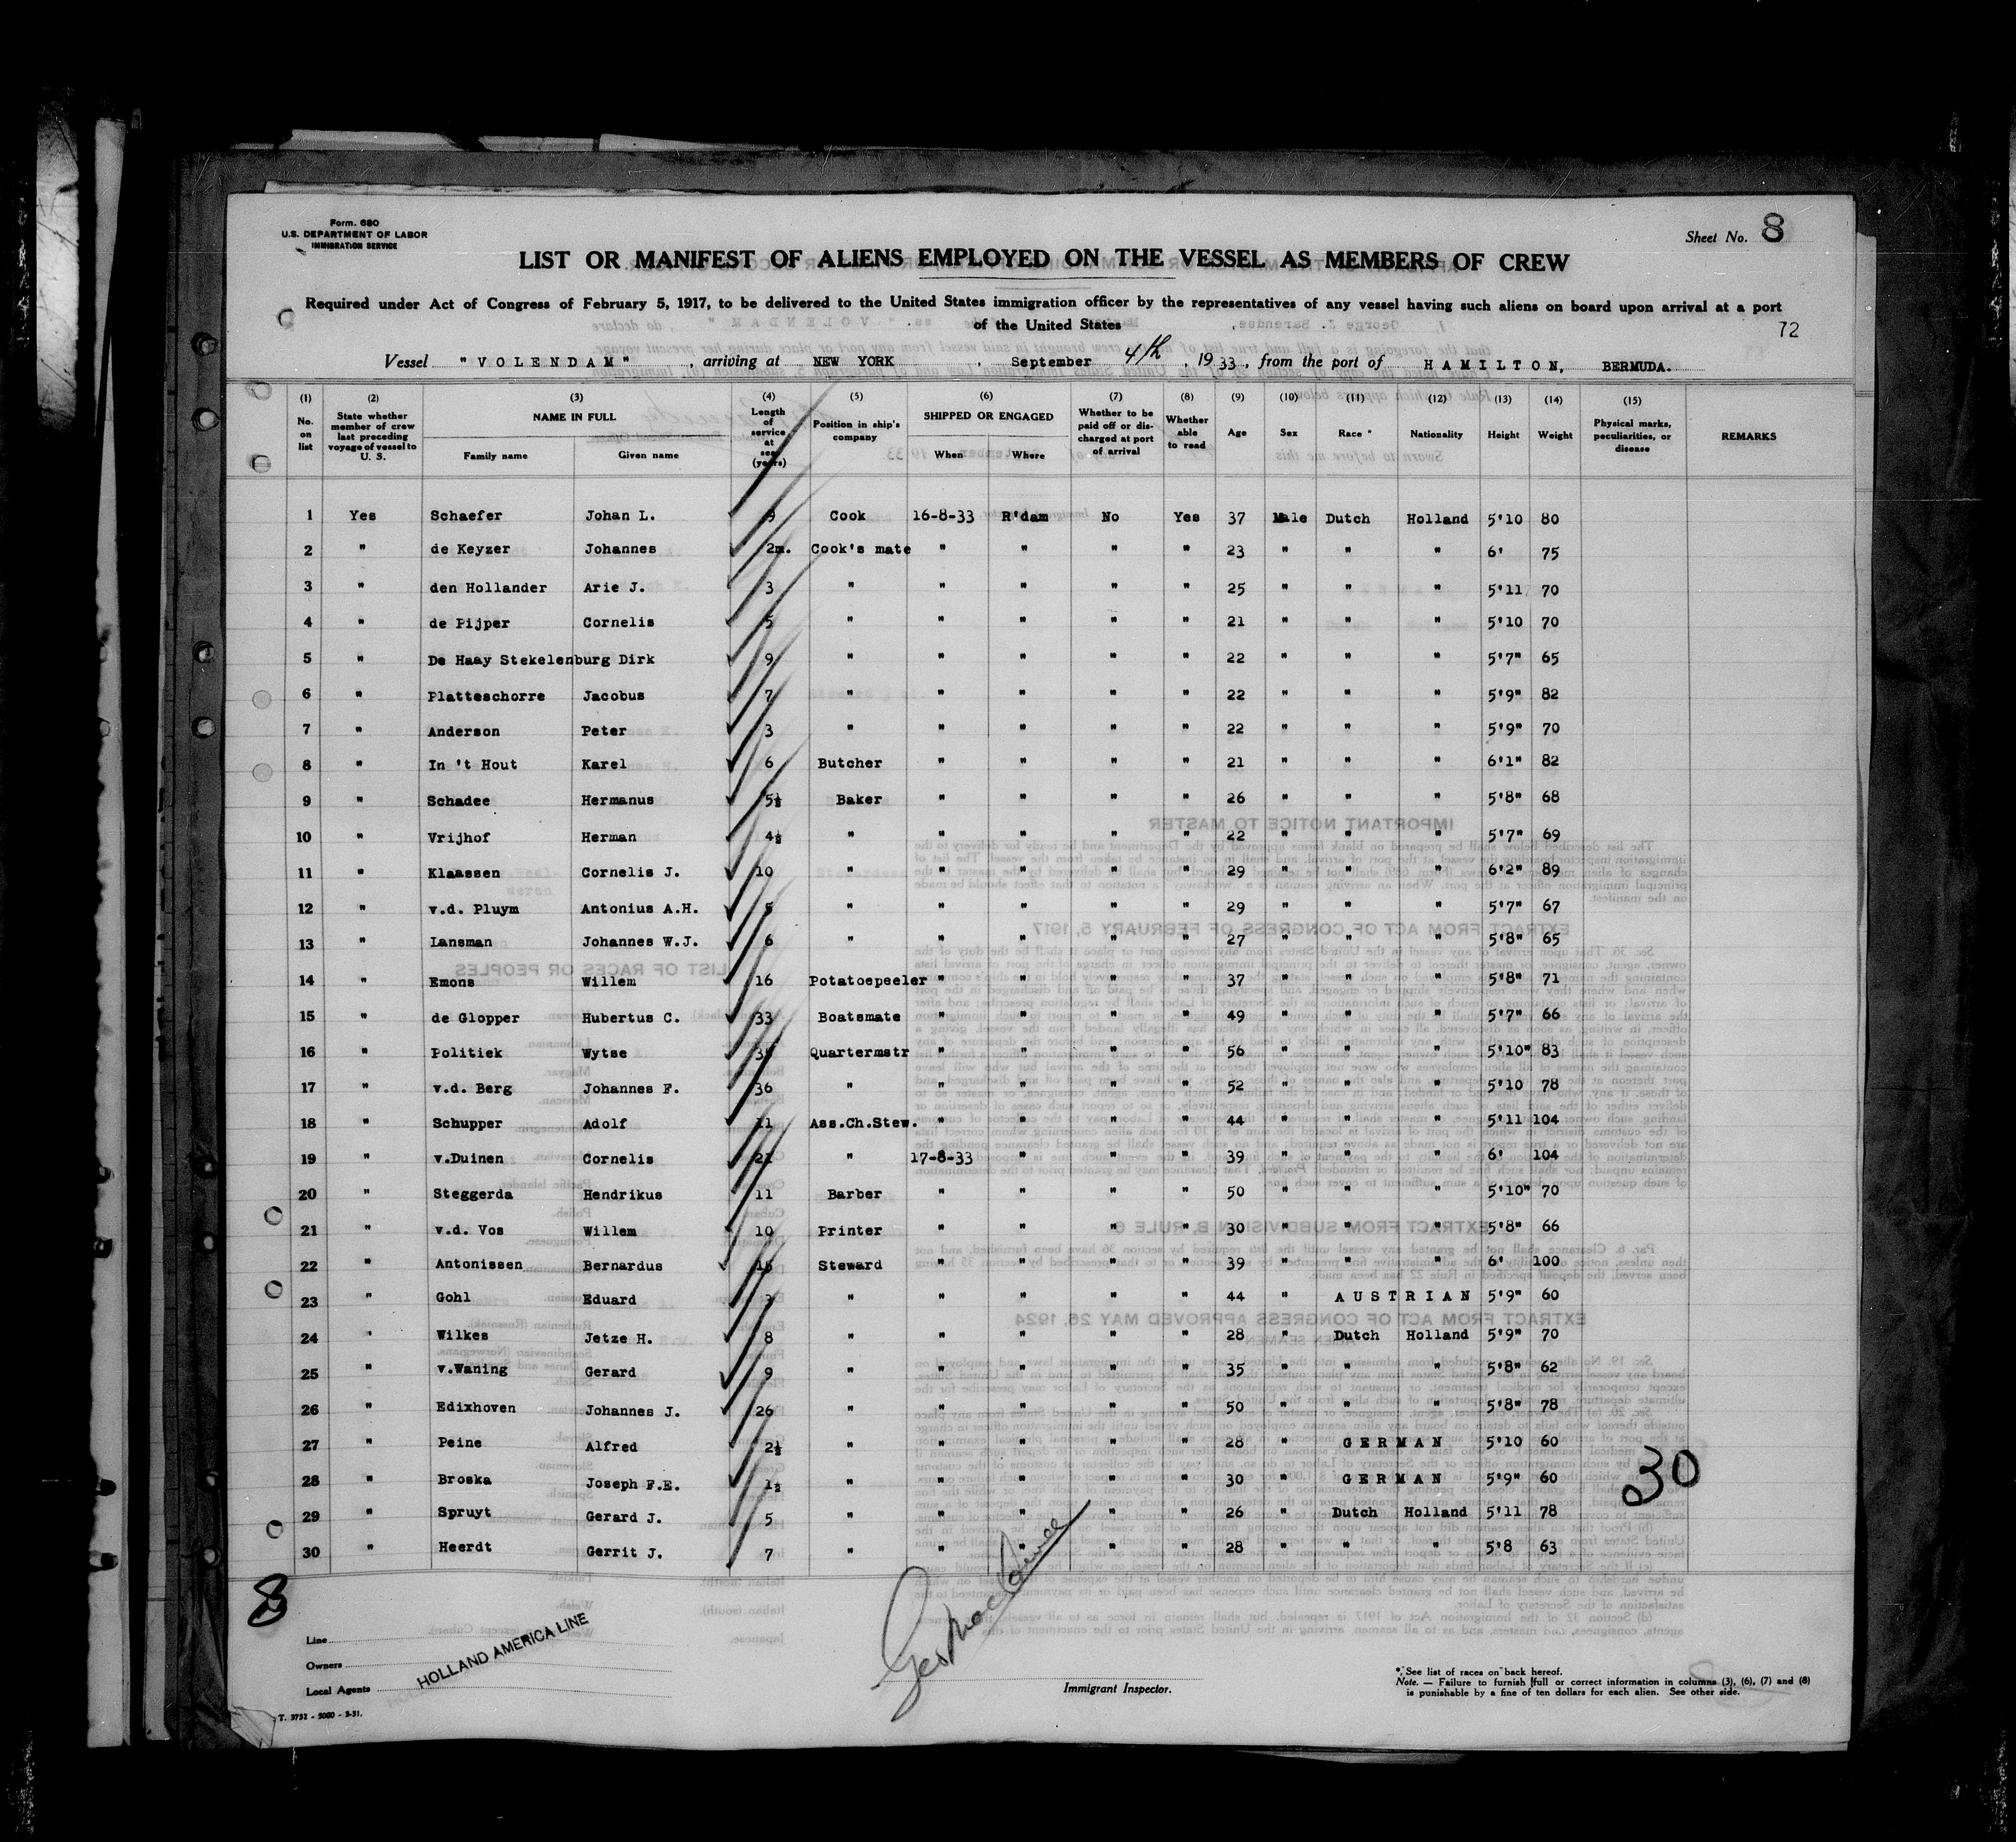 Form. 680
U.S. DEPARTMENT OF LABOR
IMMIGRATION SERVICE
Sheet No. 8
LIST OR MANIFEST OF ALIENS EMPLOYED ON THE VESSEL AS MEMBERS OF CREW
Required under Act of Congress of February 5, 1917, to be delivered to the United States immigration officer by the representatives of any vessel having such aliens on board upon arrival at a port
of the United States
72
Vessel "VOLENDAM", arriving at NEW YORK, September 4th, 1933, from the port of HAMILTON, BERMUDA.
(1) No. on list (2) State whether member of crew last preceding voyage of vessel to U. S. (3) NAME IN FULL Family name Given name (4) Length of service at sea (years) (5) Position in ship's company (6) SHIPPED OR ENGAGED When Where (7) Whether to be paid off or discharged at port of arrival (8) Whether able to read (9) Age (10) Sex (11) Race * (12) Nationality (13) Height (14) Weight (15) Physical marks, peculiarities, or disease REMARKS
1 Yes Schaefer Johan L. 9 Cook 16-8-33 R'dam No Yes 37 Male Dutch Holland 5'10 80
2 " de Keyzer Johannes 2m. Cook's mate " " " " 23 " " " 6' 75
3 " den Hollander Arie J. 3 " " " " " 25 " " " 5'11 70
4 " de Pijper Cornelis 5 " " " " " 21 " " " 5'10 70
5 " De Haay Stekelenburg Dirk 9 " " " " " 22 " " " 5'7" 65
6 " Platteschorre Jacobus 7 " " " " " 22 " " " 5'9" 82
7 " Anderson Peter 3 " " " " " 22 " " " 5'9" 70
8 " In 't Hout Karel 6 Butcher " " " " 21 " " " 6'1" 82
9 " Schadee Hermanus 5½ Baker " " " " 26 " " " 5'8" 68
10 " Vrijhof Herman 4½ " " " " " 22 " " " 5'7" 69
11 " Klaassen Cornelis J. 10 " " " " " 29 " " " 6'2" 89
12 " v.d. Pluym Antonius A.H. 5 " " " " " 29 " " " 5'7" 67
13 " Lansman Johannes W.J. 6 " " " " " 27 " " " 5'8" 65
14 " Emons Willem 16 Potatoepeeler " " " " 37 " " " 5'8" 71
15 " de Glopper Hubertus C. 33 Boatsmate " " " " 49 " " " 5'7" 66
16 " Politiek Wytse Quartermstr " " " " 56 " " " 5'10" 83
17 " v.d. Berg Johannes F. 36 " " " " " 52 " " " 5'10 78
18 " Schupper Adolf 11 Ass.Ch.Stew. " " " " 44 " " " 5'11 104
19 " v.Duinen Cornelis " 17-8-33 " " " 39 " " " 6' 104
20 " Steggerda Hendrikus 11 Barber " " " " 50 " " " 5'10" 70
21 " v.d. Vos Willem 10 Printer " " " " 30 " " " 5'8" 66
22 " Antonissen Bernardus Steward " " " " 39 " " " 6' 100
23 " Gohl Eduard " " " " " 44 " AUSTRIAN 5'9" 60
24 " Wilkes Jetze H. 8 " " " " " 28 " Dutch Holland 5'9" 70
25 " v.Waning Gerard 9 " " " " " 35 " " " 5'8" 62
26 " Edixhoven Johannes J. 26 " " " " " 50 " " " 5'8" 78
27 " Peine Alfred 2½ " " " " " 28 " GERMAN 5'10 60
28 " Broska Joseph F.E. 1½ " " " " " 30 " GERMAN 5'9" 60
29 " Spruyt Gerard J. 5 " " " " " 26 " Dutch Holland 5'11 78
30 " Heerdt Gerrit J. 7 " " " " " 28 " " " 5'8 63
30
8
Line
Owners
Local Agents
HOLLAND AMERICA LINE
Immigrant Inspector.
* See list of races on back hereof.
Note. — Failure to furnish full or correct information in columns (3), (6), (7) and (8)
is punishable by a fine of ten dollars for each alien. See other side.
T. 3732 - 5000 - 3-31.